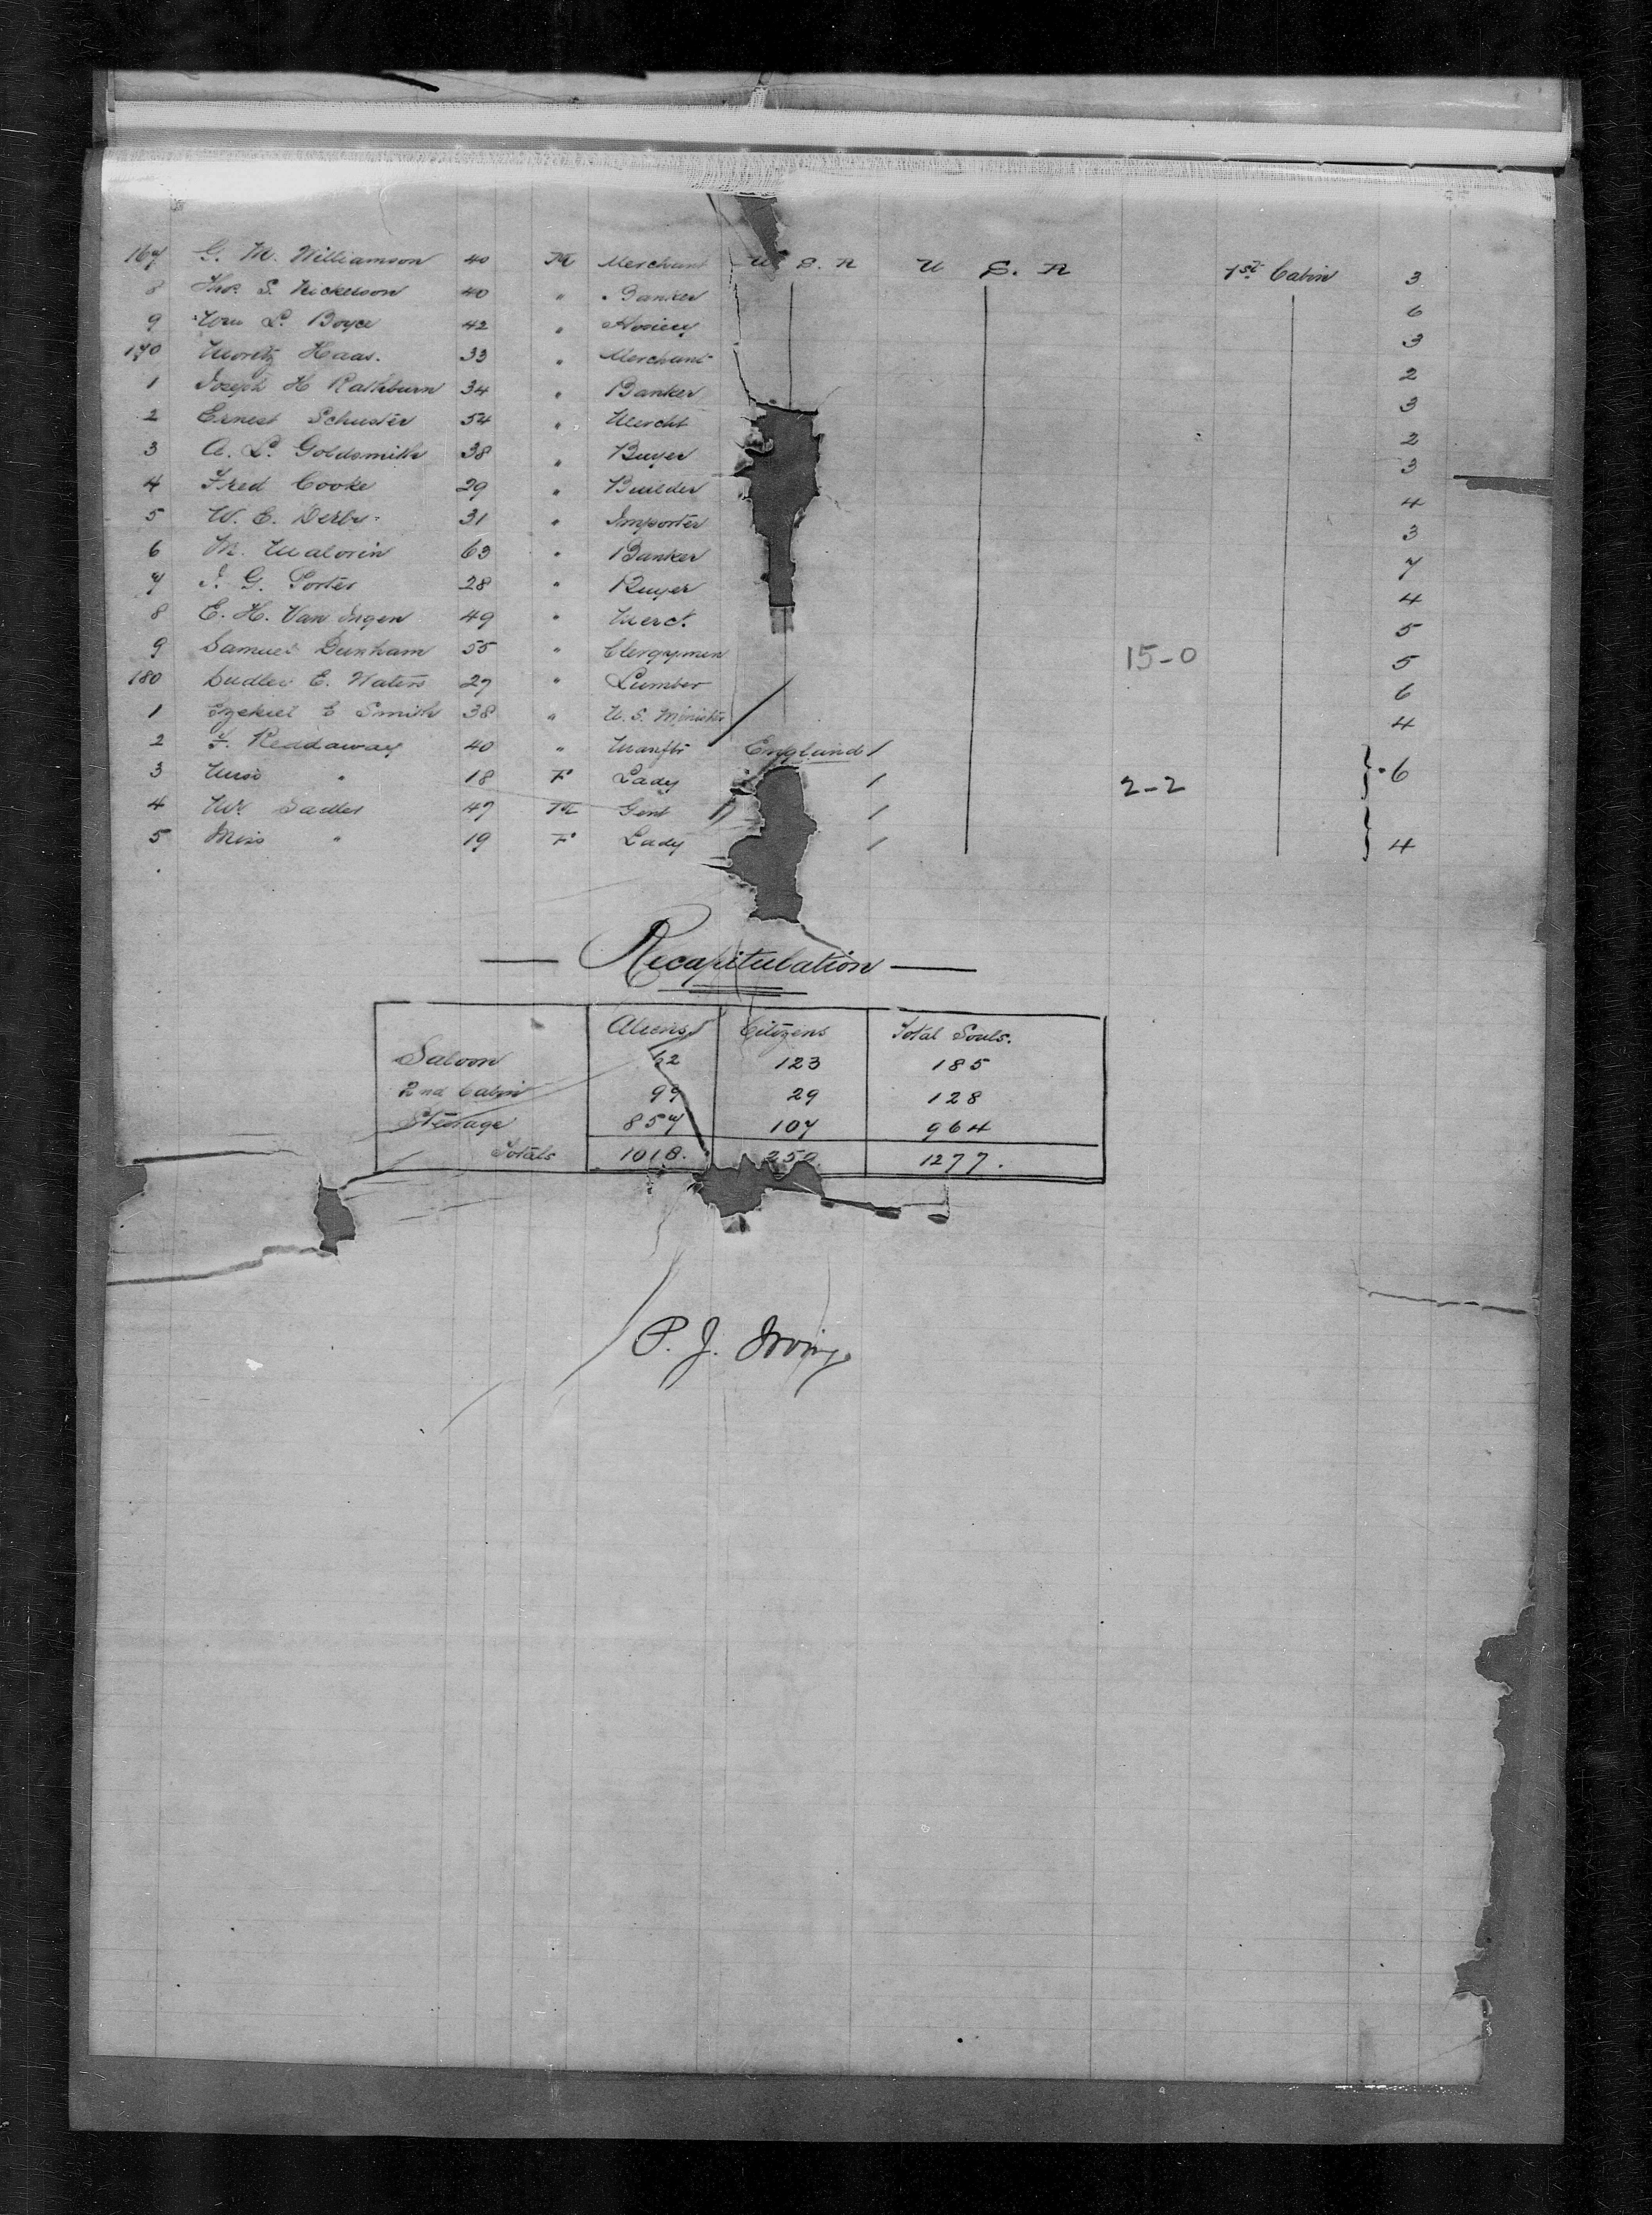 167 G. M. Williamson 40 M Merchant U S. A U S. A 1st Cabin 3
8 Thos S. Nickerson 40 " Banker 6
9 Wm L. Boyce 42 " Hosiery 3
170 Moritz Haas. 33 " Merchant 2
1 Joseph H Rathburn 34 " Banker 3
2 Ernest Schuster 54 " Mercht 2
3 A. L. Goldsmith 38 " Buyer 3
4 Fred Cooke 29 " Builder 4
5 W. E. Derby 31 " Importer 3
6 M. 63 " Banker 7
7 J. G. Porter 28 " Buyer 4
8 E. H. Van Ingen 49 " Merct. 5
9 Samuel Dunham 55 " Clergymen 15-0 5
180 Dudley E. Waters 27 " Lumber 6
1 Ezekiel E Smith 38 " U. S. Minister 4
2 F. Reddaway 40 " Manftr England 1
3 Miss " 18 F Lady 1 2-2 6
4 Mr Sadler 47 M Gent 1
5 Miss " 19 F Lady 1 4
Recapitulation
Aliens Citizens Total Souls.
Saloon 62 123 185
2nd Cabin 99 29 128
Steerage 857 107 964
Totals 1018. 259. 1277.
P. J. Irving